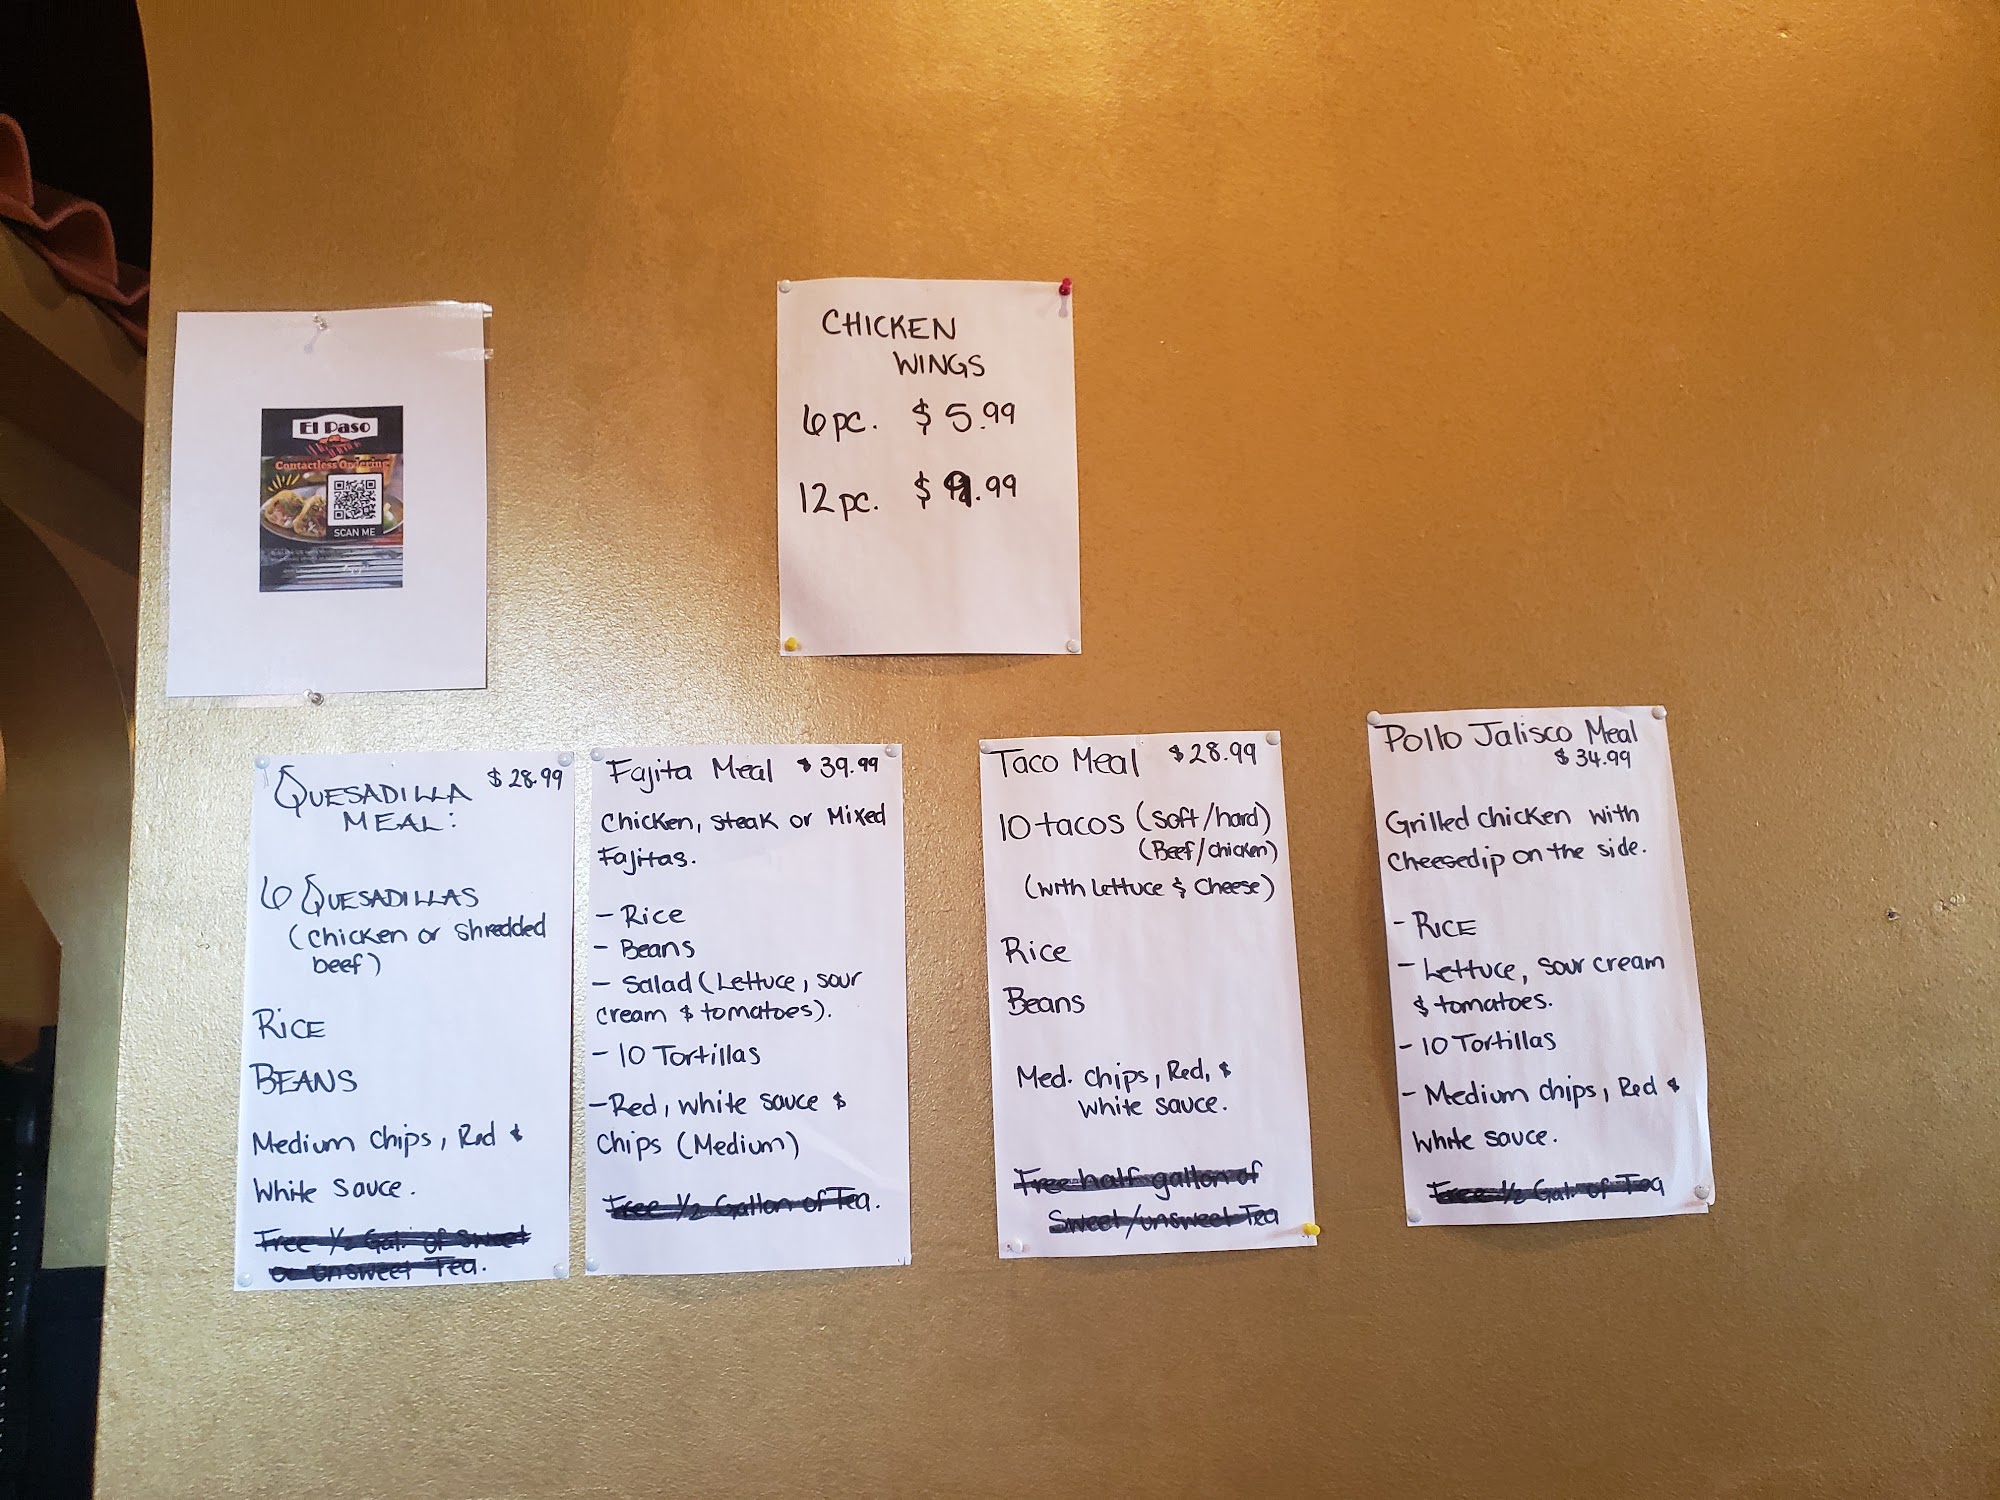 El Paso
Contactless Ordering
SCAN ME
CHICKEN
WINGS
6 pc. $5.99
12 pc. $9.99
QUESADILLA $28.99
MEAL:
6 QUESADILLAS
(chicken or shredded
beef)
RICE
BEANS
Medium chips, Red &
White Sauce.
Free 1/2 Gal. of Sweet
or unsweet Tea.
Fajita Meal $39.99
Chicken, steak or Mixed
Fajitas.
- Rice
- Beans
- Salad (Lettuce, sour
cream & tomatoes).
- 10 Tortillas
- Red, white sauce &
Chips (Medium)
Free 1/2 Gallon of Tea.
Taco Meal $28.99
10 tacos (soft/hard)
(Beef/chicken)
(with lettuce & cheese)
Rice
Beans
Med. chips, Red, &
white sauce.
Free half gallon of
Sweet/unsweet Tea
Pollo Jalisco Meal
$34.99
Grilled chicken with
cheesedip on the side.
- RICE
- Lettuce, sour cream
& tomatoes.
- 10 Tortillas
- Medium chips, Red &
white sauce.
Free 1/2 Gal. of Tea